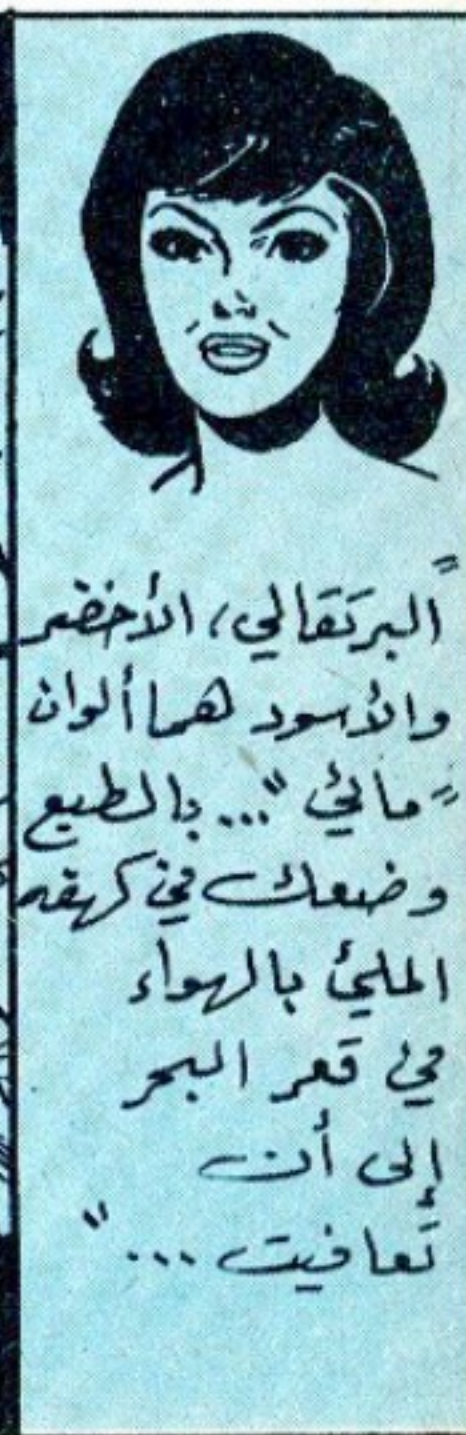 "البرتقالي، الأخضر
والأسود هما ألوان
"مائي"... بالطبع
وضعك في كهفه
المليئ بالهواء
في قعر البحر
إلى أن
تعافيت..."